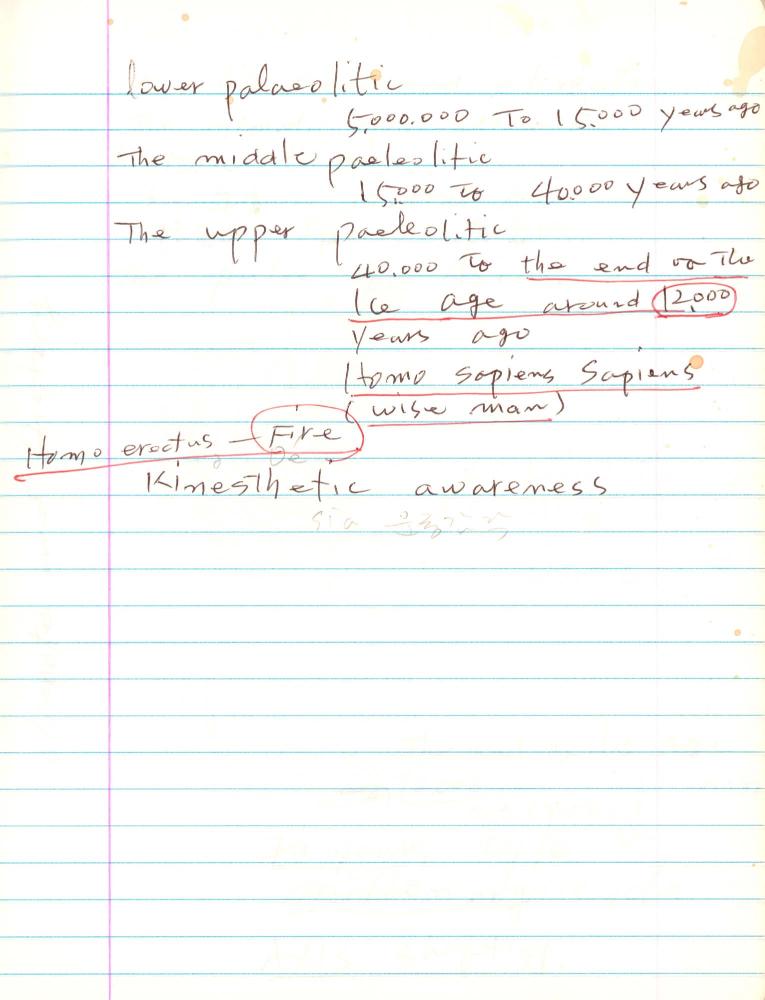 lower palaeolitic
5,000.000 To 15.000 years ago
The middle paeleolitic
15.000 to 40.000 years ago
The upper paeleolitic
40.000 to the end on the
Ice age around 12.000
years ago
Homo sapiens Sapiens
(wise man)
Homo erectus – Fire
Kinesthetic awareness
운동감각